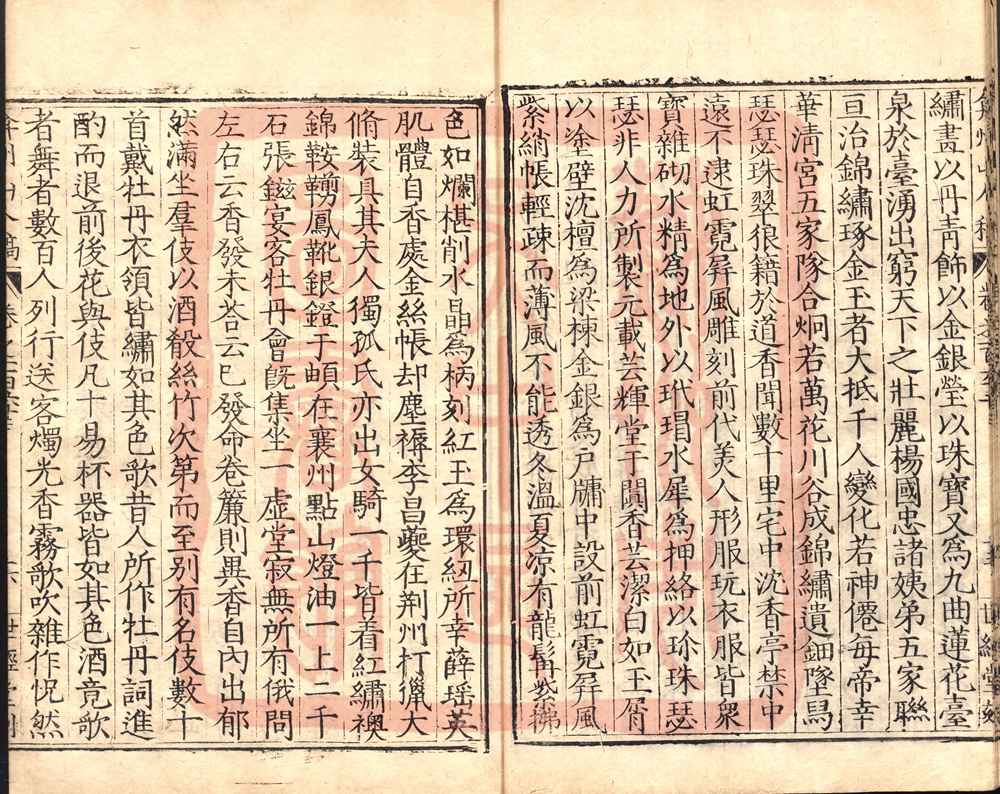 繡畫以丹青飾以金銀瑩以珠寶又爲九曲蓮花臺
泉於臺湧出窮天下之壯麗楊國忠諸姨弟五家聯
亘冶錦繡琢金玉者大抵千人變化若神僊每帝幸
華清宮五家隊合炯若萬花川谷成錦繡遺鈿墜舄
瑟瑟珠翠狼籍於道香聞數十里宅中沈香亭禁中
遠不逮虹霓屛風雕刻前代美人形服玩衣服皆衆
寶雜砌水精爲地外以玳瑁水犀爲押絡以珍珠瑟
瑟非人力所製元載芸輝堂于闐香芸潔白如玉屑
以塗壁沈檀爲梁棟金銀爲戶牖中設前虹霓屛風
紫綃帳輕疎而薄風不能透冬溫夏凉有龍髯紫拂
色如爛椹削水晶爲柄刻紅玉爲環紐所幸薛瑶英
肌體自香處金絲帳却塵褥李昌夔在荆州打獵大
脩裝具其夫人獨孤氏亦出女騎一千皆着紅繡襖
錦鞍韉鳳靴銀鐙于頔在襄州點山燈油一上二千
石張鎡宴客牡丹會旣集坐一虛堂寂無所有俄問
左右云香發未荅云巳發命卷簾則異香自內出郁
然滿坐羣伎以酒殽絲竹次第而至別有名伎數十
首戴牡丹衣領皆繡如其色歌昔人所作牡丹詞進
酌而退前後花與伎凡十易杯器皆如其色酒竟歌
者舞者數百人列行送客燭光香霧歌吹雜作怳然